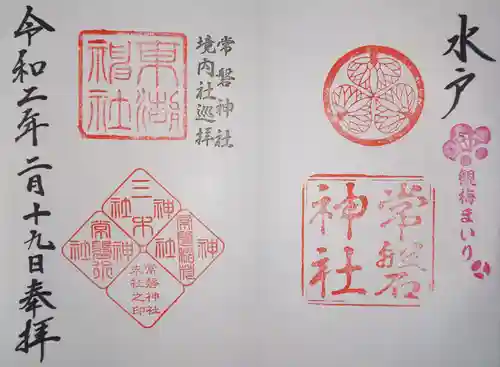 水戸
観梅まいり
常磐
神社
常磐神社
境内社巡拝
東湖
神社
三木
神社
常磐稲荷
神社
常磐神社
末社之印
令和二年二月十九日奉拝